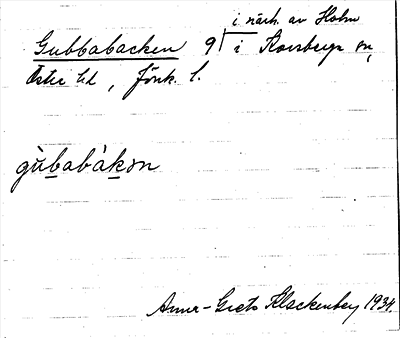 i närh. av Holm
Gubbabacken 9 i Korsberga sn,
Östra hd, Jönk. l.
gùbabàkɘn
Anna-Greta Klackenberg 1934.